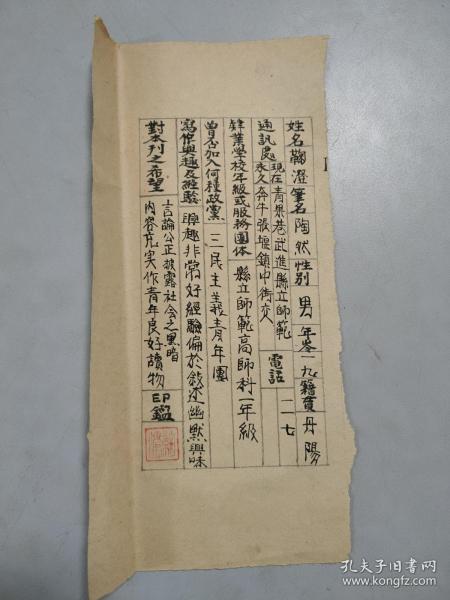 姓名 鞠澄 筆名 陶然 性別 男 年岺 一九 籍貫 丹陽
通訊處 現在 青果巷武進縣立師範 電話 一二七
永久 奔牛張堰鎮中街交
肄業學校年級或服務團体 縣立師範高師科一年級
曾否加入何種政黨 三民主義青年團
寫作興趣及經驗 興趣非常好經驗偏於敍述幽默興味
對本刊之希望 言論公正披露社会之黑暗
內容充实作青年良好讀物 印鑑
孔夫子旧书网
www.kongfz.com